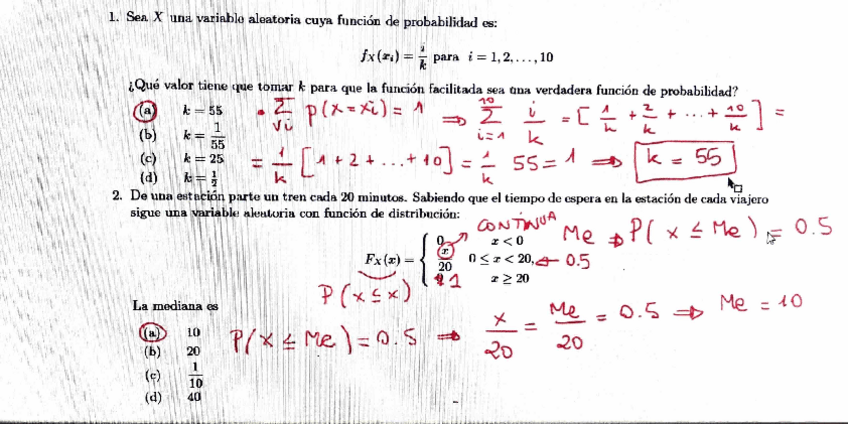 1. Sea X una variable aleatoria cuya función de probabilidad es:
fX(xi) = i/k para i = 1, 2, ..., 10
¿Qué valor tiene que tomar k para que la función facilitada sea una verdadera función de probabilidad?
(a) k = 55
• Σ∀i P(X = xi) = 1 ⇒ Σ i=1 10 i/k = [1/k + 2/k + ... + 10/k] =
(b) k = 1/55
(c) k = 25
= 1/k [1 + 2 + ... + 10] = 1/k 55 = 1 ⇒ k = 55
(d) k = 1/2
2. De una estación parte un tren cada 20 minutos. Sabiendo que el tiempo de espera en la estación de cada viajero
sigue una variable aleatoria con función de distribución:
CONTINUA
Me ⇒ P(X ≤ Me) = 0.5
0 x < 0
FX(x) = { x/20 0 ≤ x < 20, ← 0.5
1 x ≥ 20
P(X ≤ x)
La mediana es
(a) 10
P(X ≤ Me) = 0.5 ⇒ x/20 = Me/20 = 0.5 ⇒ Me = 10
(b) 20
(c) 1/10
(d) 40